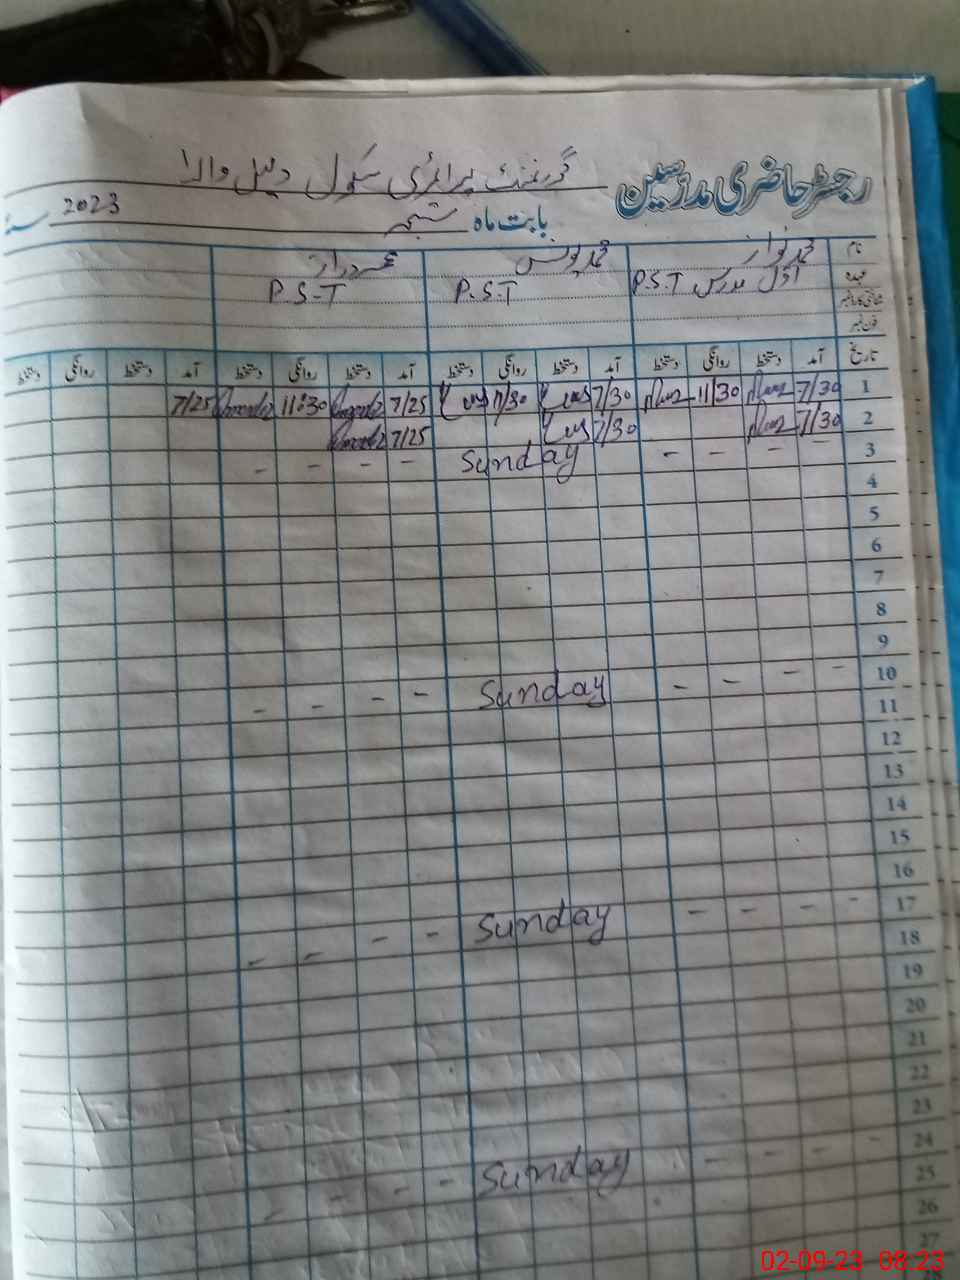 رجسٹر حاضری مدرسین گورنمنٹ پرائمری سکول والا
بابت ماہ ستمبر سنہ 2023
نام محمد نواز محمد یونس عمر دراز
عہدہ اول مدرس P.S.T P.S.T P.S.T
شناختی کارڈ نمبر
فون نمبر
تاریخ آمد دستخط روانگی دستخط آمد دستخط روانگی دستخط آمد دستخط روانگی دستخط آمد دستخط روانگی دستخط
1 7/30 11/30 7/30 11/30 7/25 11:30 7/25
2 7/30 7/30 7/25
3 - - - - Sunday - - - -
4
5
6
7
8
9
10 - - - - Sunday - - - -
11
12
13
14
15
16
17 - - - - Sunday - - - -
18
19
20
21
22
23
24 - - - - Sunday - - - -
25
26
27
02-09-23 08:23